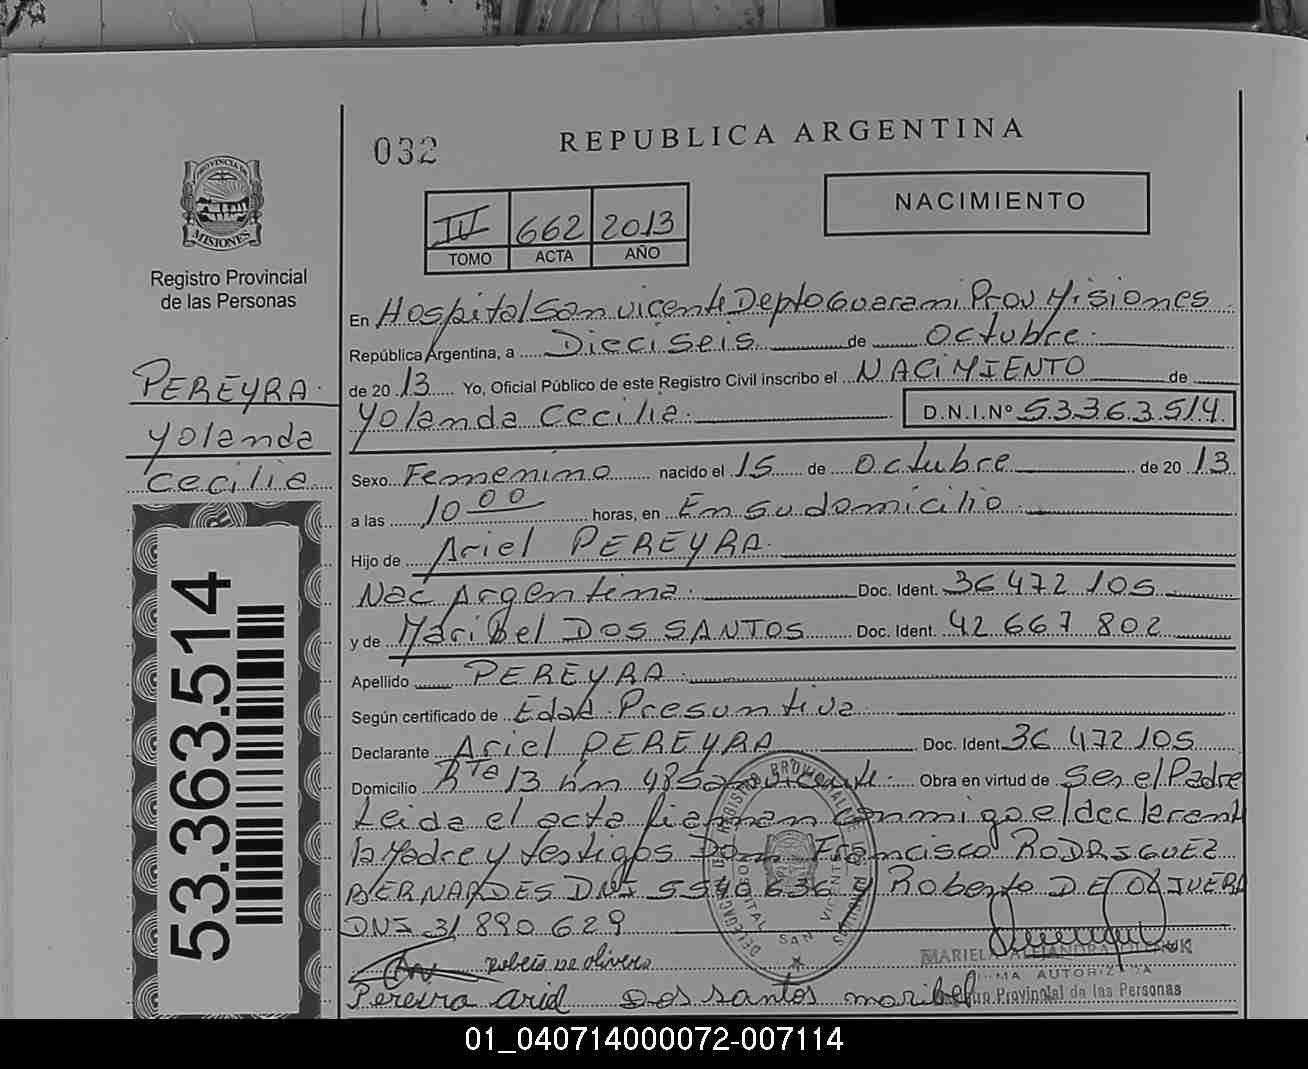 032
REPUBLICA ARGENTINA
NACIMIENTO
IV 662 2013
TOMO ACTA AÑO
PROVINCIA DE
MISIONES
Registro Provincial
de las Personas
En Hospital San vicente Depto Guarami Prov Misiones
República Argentina, a Dieciseis de Octubre
de 2013 Yo, Oficial Público de este Registro Civil inscribo el NACIMIENTO de
Yolanda Cecilia D.N.I.Nº 53363514
PEREYRA
Yolanda
Cecilia
Sexo Femenino nacido el 15 de Octubre de 2013
a las 10 00 horas, en En su domicilio
Hijo de Ariel PEREYRA
Nac Argentina Doc. Ident. 36 472 105
y de Maribel DOS SANTOS Doc. Ident. 42 667 802
Apellido PEREYRA
Según certificado de Edad Presuntiva
Declarante Ariel PEREYRA Doc. Ident. 36 472 105
Domicilio Rta 13 Km 48 San vicente Obra en virtud de Ser el Padre
Leida el acta firman conmigo el declarant
la Madre y testigos Don Francisco RODRIGUEZ
BERNARDES DNI 5540636 y Roberto DE OLIVERA
DNI 31 890 629
53.363.514
DELEGACION REGISTRO PROVINCIAL DE LAS PERSONAS
HOSPITAL SAN VICENTE
Roberto De olivera
MARIELA ALEJANDRA
FIRMA AUTORIZADA
Provincial de las Personas
Pereira ariel Dos santos maribel
01_040714000072-007114